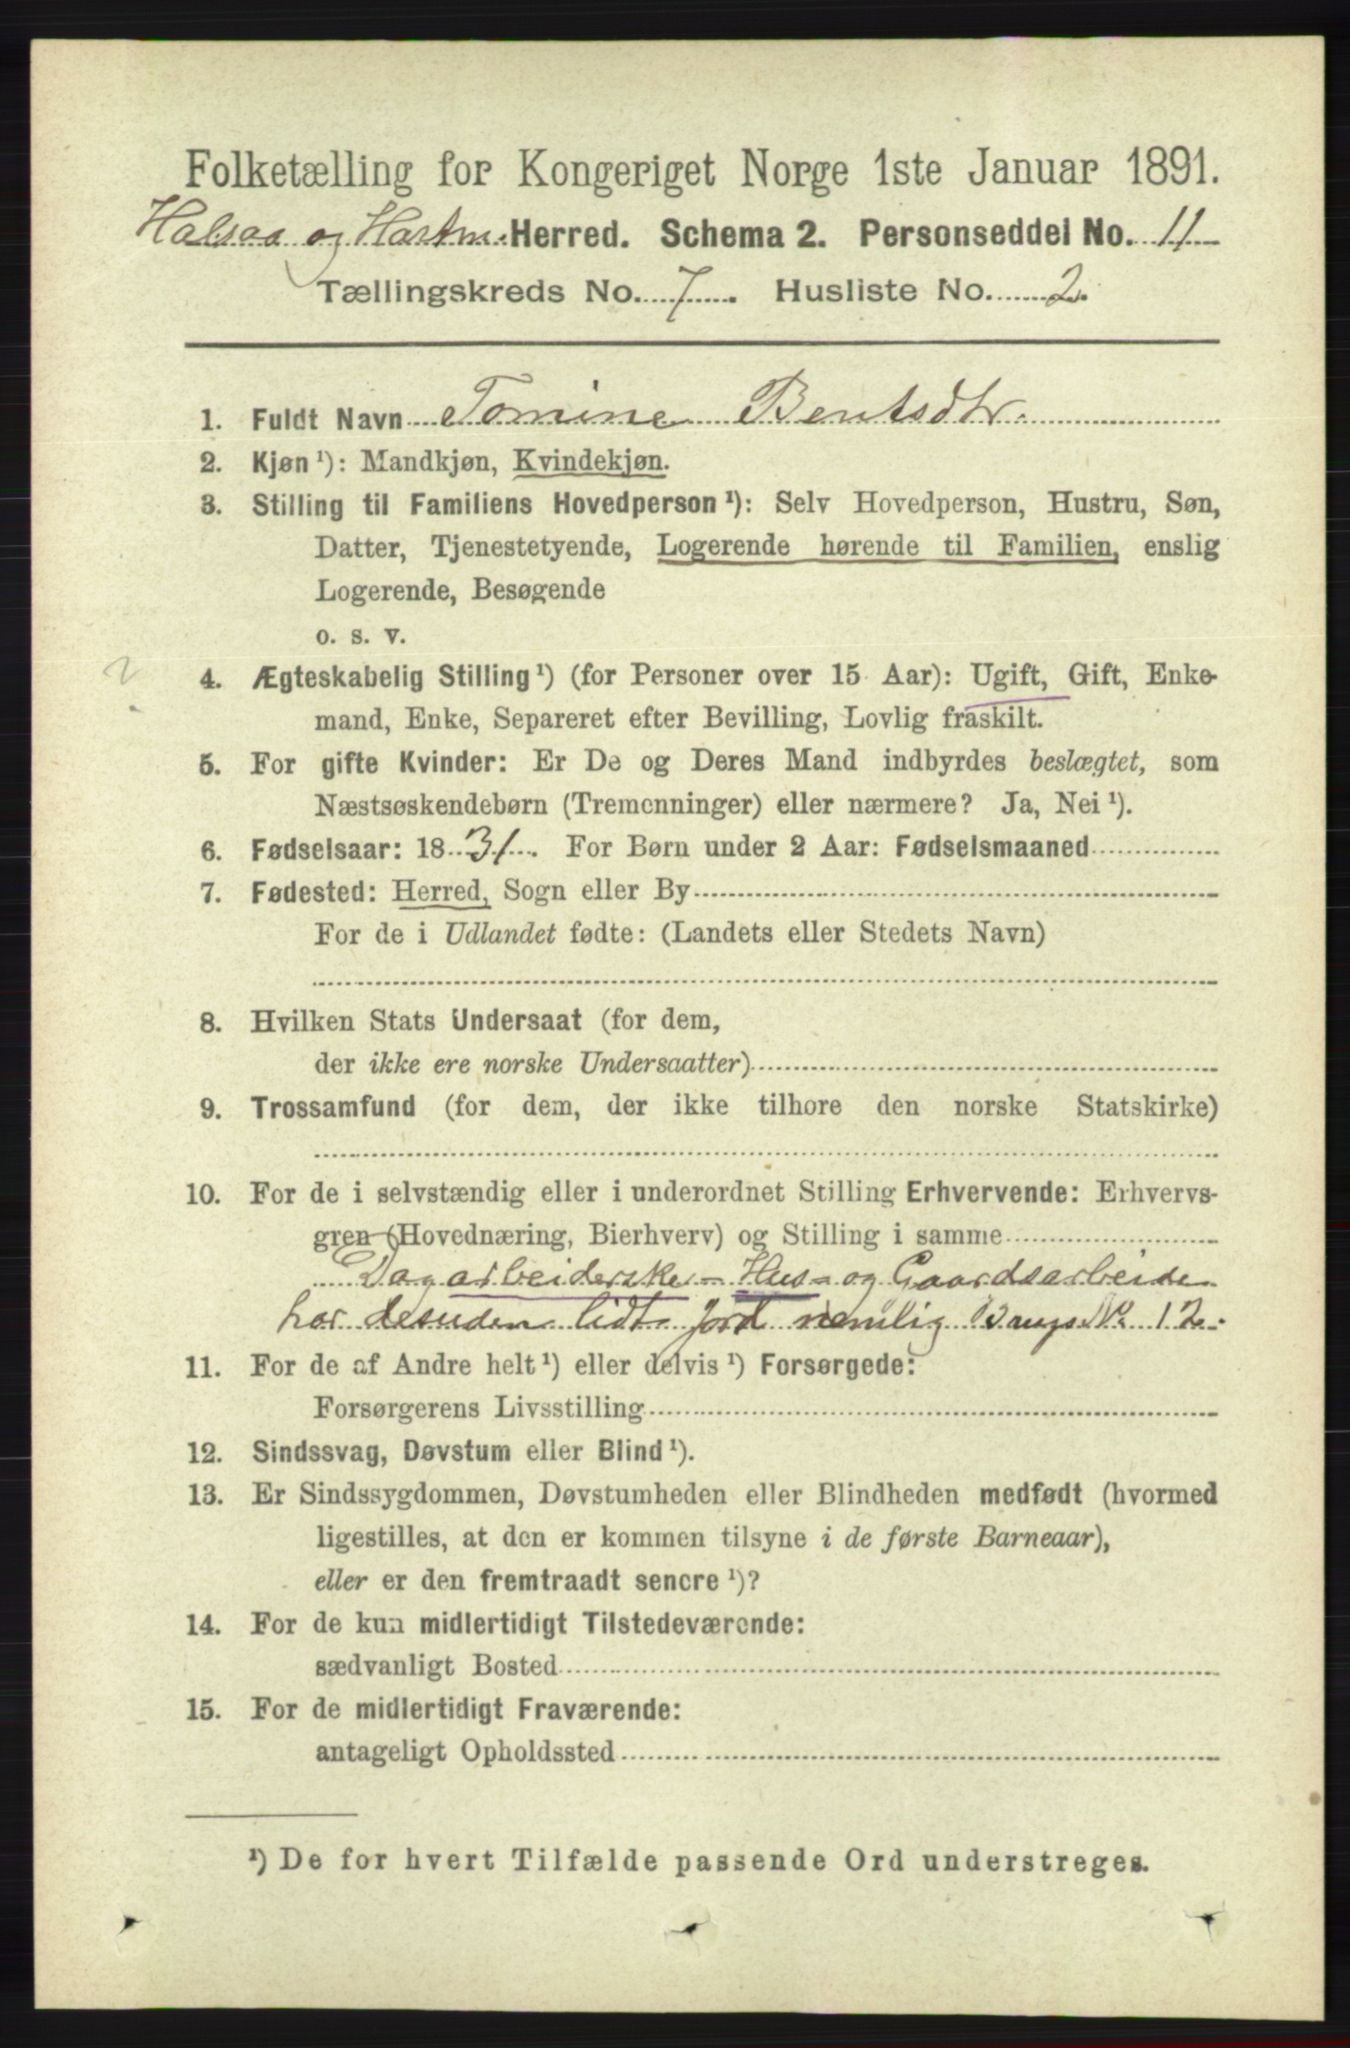 Folketælling for Kongeriget Norge 1ste Januar 1891.
Halsaa og Hartm. Herred. Schema 2. Personseddel No. 11
Tællingskreds No. 7. Husliste No. 2.
1. Fuldt Navn Tomine Bentsdtr.
2. Kjøn ¹): Mandkjøn, Kvindekjøn.
3. Stilling til Familiens Hovedperson ¹): Selv Hovedperson, Hustru, Søn,
Datter, Tjenestetyende, Logerende hørende til Familien, enslig
Logerende, Besøgende
o. s. v.
4. Ægteskabelig Stilling ¹) (for Personer over 15 Aar): Ugift, Gift, Enke-
mand, Enke, Separeret efter Bevilling, Lovlig fraskilt.
5. For gifte Kvinder: Er De og Deres Mand indbyrdes beslægtet, som
Næstsøskendebørn (Tremenninger) eller nærmere? Ja, Nei ¹).
6. Fødselsaar: 1831. For Børn under 2 Aar: Fødselsmaaned
7. Fødested: Herred, Sogn eller By
For de i Udlandet fødte: (Landets eller Stedets Navn)
8. Hvilken Stats Undersaat (for dem,
der ikke ere norske Undersaatter)
9. Trossamfund (for dem, der ikke tilhøre den norske Statskirke)
10. For de i selvstændig eller i underordnet Stilling Erhvervende: Erhvervs-
gren (Hovednæring, Bierhverv) og Stilling i samme
Dagarbeiderske - Hus- og Gaardsarbeide
har desuden lidt Jord nemlig Brugs No 12.
11. For de af Andre helt ¹) eller delvis ¹) Forsørgede:
Forsørgerens Livsstilling
12. Sindssvag, Døvstum eller Blind ¹).
13. Er Sindssygdommen, Døvstumheden eller Blindheden medfødt (hvormed
ligestilles, at den er kommen tilsyne i de første Barneaar),
eller er den fremtraadt senere ¹)?
14. For de kun midlertidigt Tilstedeværende:
sædvanligt Bosted
15. For de midlertidigt Fraværende:
antageligt Opholdssted
¹) De for hvert Tilfælde passende Ord understreges.